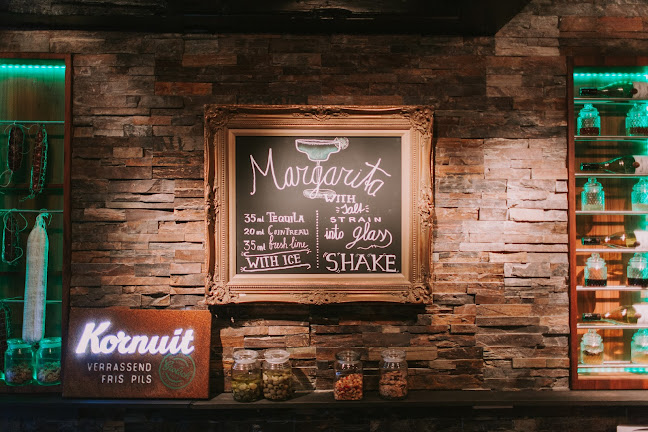 Margarita
35 ml TEQUILA
20 ml COINTREAU
35 ml fresh lime
WITH ICE
WITH
Salt
STRAIN
into glass
SHAKE
Kornuit
VERRASSEND
FRIS PILS